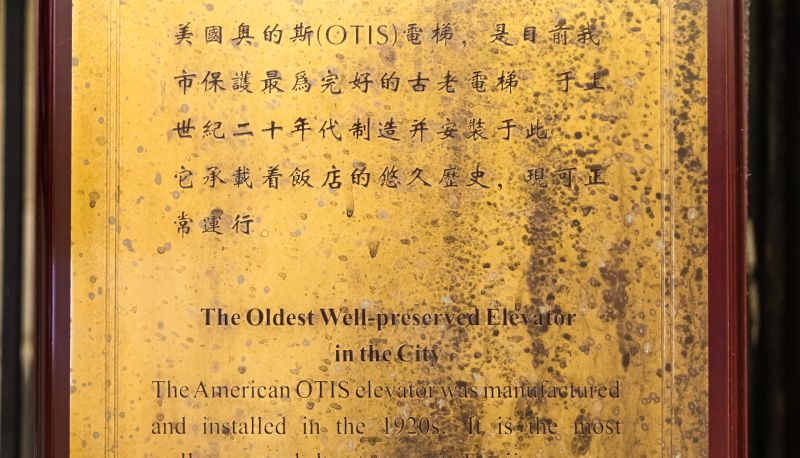 美國奥的斯(OTIS)電梯，是目前我
市保護最爲完好的古老電梯 于上
世紀二十年代制造并安裝于此
它承載着飯店的悠久歷史，現可正
常運行
The Oldest Well-preserved Elevator
in the City
The American OTIS elevator was manufactured
and installed in the 1920s. It is the most